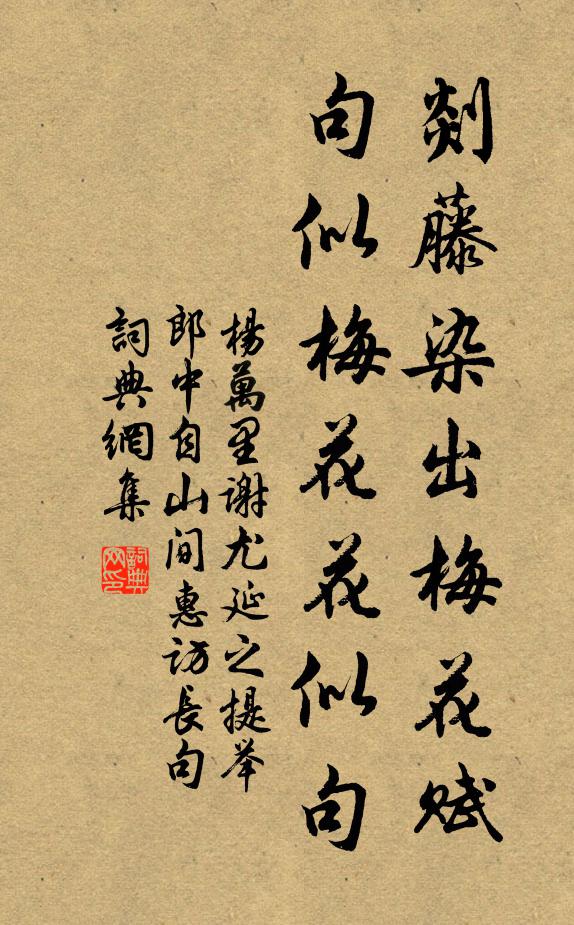 剡藤染出梅花賦
句似梅花花似句
楊萬里謝尤延之提举
郎中自山间惠访長句
詞典網集
詞典网印